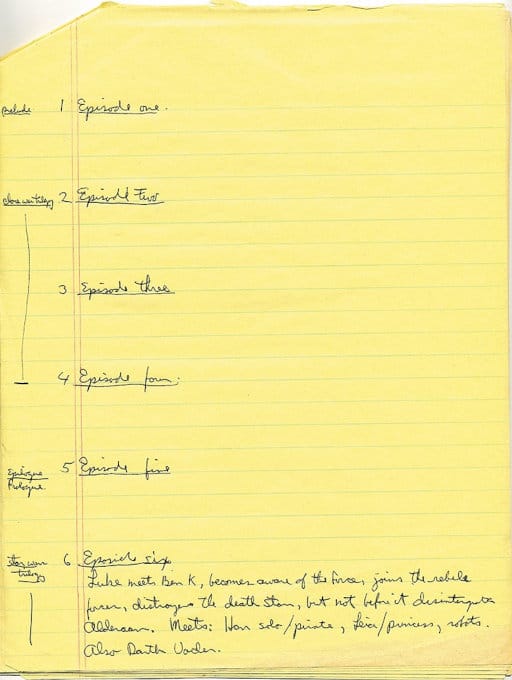 Prelude 1 Episode one.
clone war trilogy 2 Episode Two
3 Episode three
4 Episode four.
Epilogue 5 Episode five
Prologue.
star wars 6 Eposide six
trilogy
Luke meets Ben K, becomes aware of the force, joins the rebels
forces, distroys the death star, but not before it disintegrates
Alderaan. Meets: Han solo/pirate, Leia/princess, robots.
Also Darth Vader.